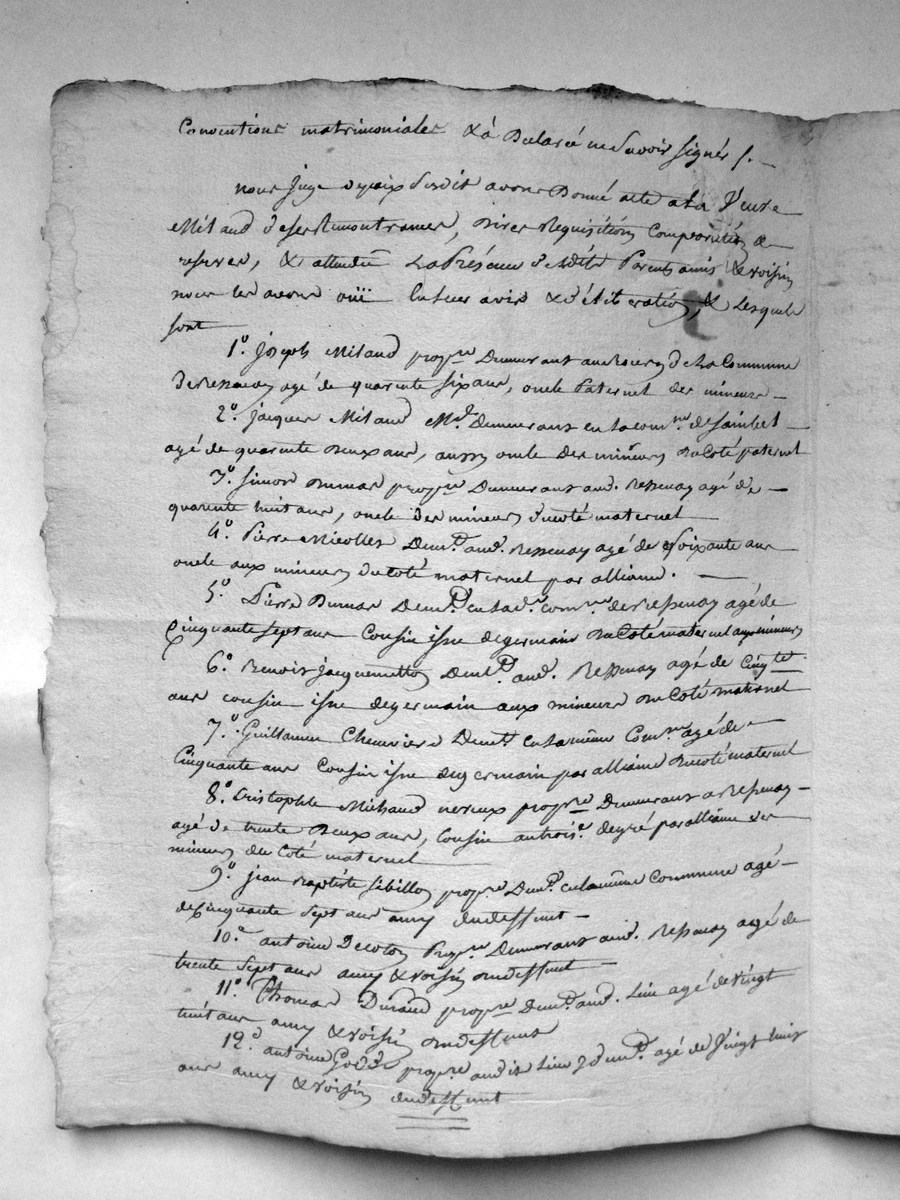 Conventions matrimoniales & a Déclaré ne Savoir signer /. —
nous Juge de paix Susdit avons Donné acte a la Veuve
Milaud de ses Remontrances, dires Requisitions Comparution &
reserves, & attendu La Présence desdits Parents amis & voisins
nous les avons ouïï en leur avis & délibération, & Lesquels
sont
1° Joseph Milaud prop.re Demeurant au de La Commune
de Ressenay agé de quarente six ans, oncle Paternel des mineurs —
2° Jacques Milaud M.d Demeurant en la com.ne de Sainbel —
agé de quarente Deux ans, aussy oncle Des mineurs Du Coté paternel
3° Simon Dumas prop.re Demeurant aud. Ressenay agé de —
quarente huit ans, oncle Des mineurs du coté maternel
4° Pierre Dem.t aud. Ressenay agé de Soixante ans
oncle aux mineurs du Coté maternel par alliance. —
5° Pierre Dumas Dem.t en lad. com.ne de Ressenay agé de
Cinquante Sept ans Cousin issu de germain Du Coté maternel aux mineurs
6° Benoit Jacquemetton Dem.t aud. Ressenay agé de Cinq.te
ans cousin issu de germain aux mineurs du Coté maternel
7° Guillaume Dem.t en la même Com.ne agé de —
Cinquante ans Cousin issu de germain par alliance Du coté maternel
8° Cristophle Michaud neveux prop.re Demeurant a Ressenay —
agé de trente Deux ans, Cousin au trois.e degré par alliance des
mineurs du Coté maternel
9° Jean Baptiste Sébillon prop.re Dem.t en la même Commune agé —
de Cinquante Sept ans amy du deffunt —
10° antoine Prop.re Demeurant aud. Ressenay agé de
trente Sept ans amy & voisin du deffunt —
11° Thomas Durand prop.re Dem.t aud. Lieu agé de Vingt
huit ans amy & voisin du deffunt
12° antoine prop.re audit Lieu y dem.t agé de Vingt huit
ans amy & voisin du deffunt